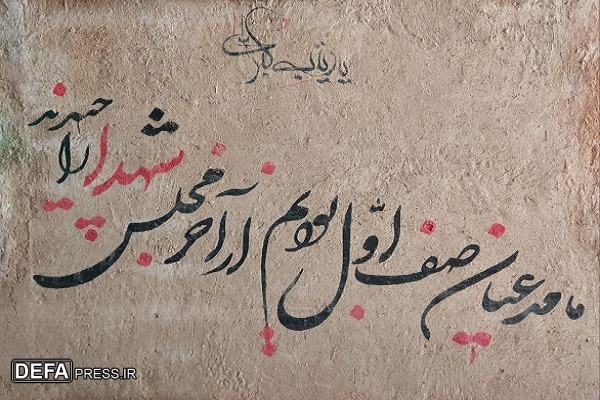 یا زینب کبری
ما مدعیان صف اول بودیم از آخر مجلس شهدا را چیدند
DEFAPRESS.IR